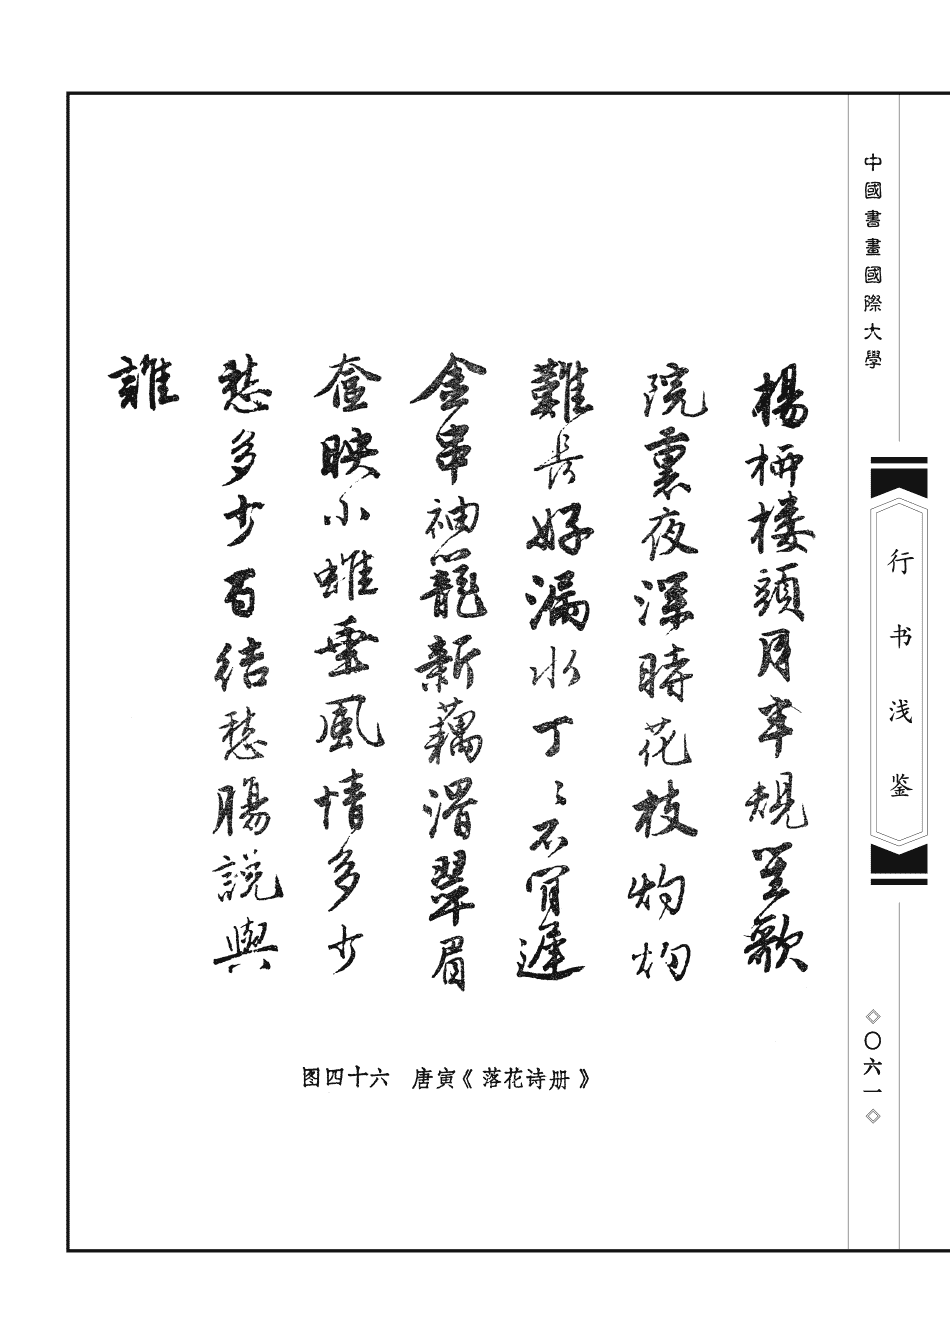 中國書畫國際大學
行书浅鉴
◇〇六一◇
楊栁楼頭月半規笙歌
院裏夜深時花枝灼灼
難長好漏水丁〻不肯遲
金串袖籠新藕滑翠眉
奩映小蛾垂風情多少
愁多少百結愁腸說與
誰
图四十六　唐寅《落花诗册》